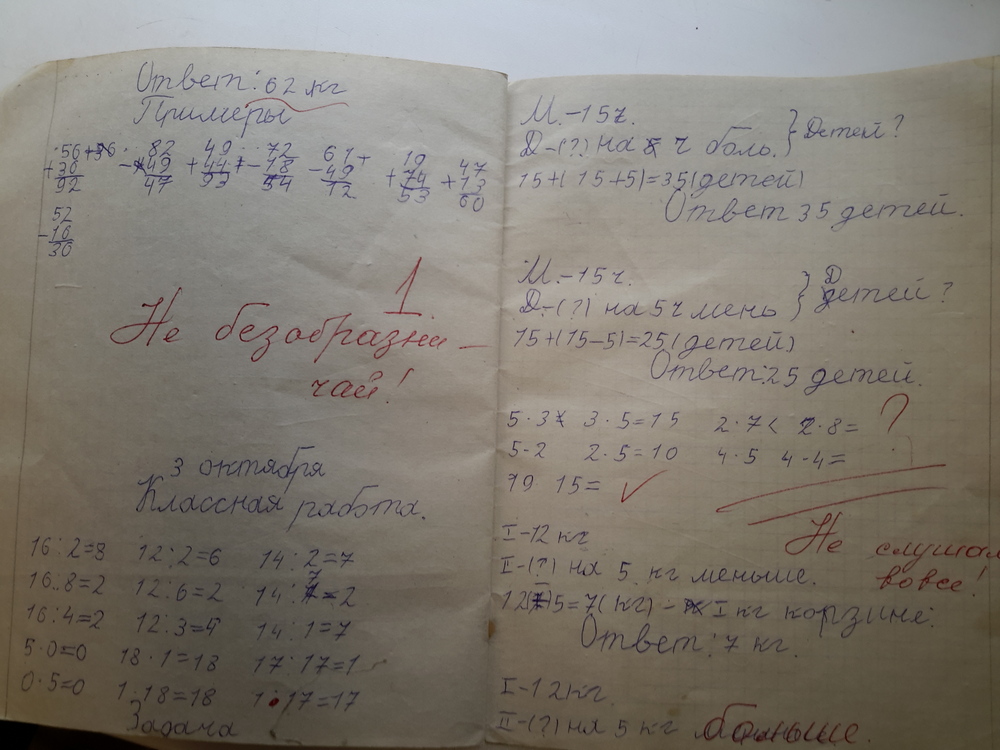 Ответ: 62 кг
Примеры
56 82 49 72 61 19 47
+36 -49 +44 -18 -49 +74 +13
92 47 93 54 12 53 60
52
-16
36
1
Не безобразни-
чай!
3 октября
Классная работа.
16:2=8 12:2=6 14:2=7
16:8=2 12:6=2 14:7=2
16:4=2 12:3=4 14:1=7
5·0=0 18·1=18 17:17=1
0·5=0 1·18=18 1·17=17
Задача
М.-15ч.
Д-(?) на ч боль. } Детей?
15+(15+5)=35(детей)
Ответ 35 детей.
М.-15ч.
Д-(?) на 5ч мень } Детей?
15+(15-5)=25(детей)
Ответ:25 детей.
5·3 3·5=15 2·7< 2·8= ?
5-2 2·5=10 4·5 4-4=
19 15= ✓
Не слушал
вовсе!
I-12кг
II-(?) на 5 кг меньше.
5=7(кг)- I кг корзине.
Ответ:7 кг.
I-12кг.
II-(?) на 5 кг больше.